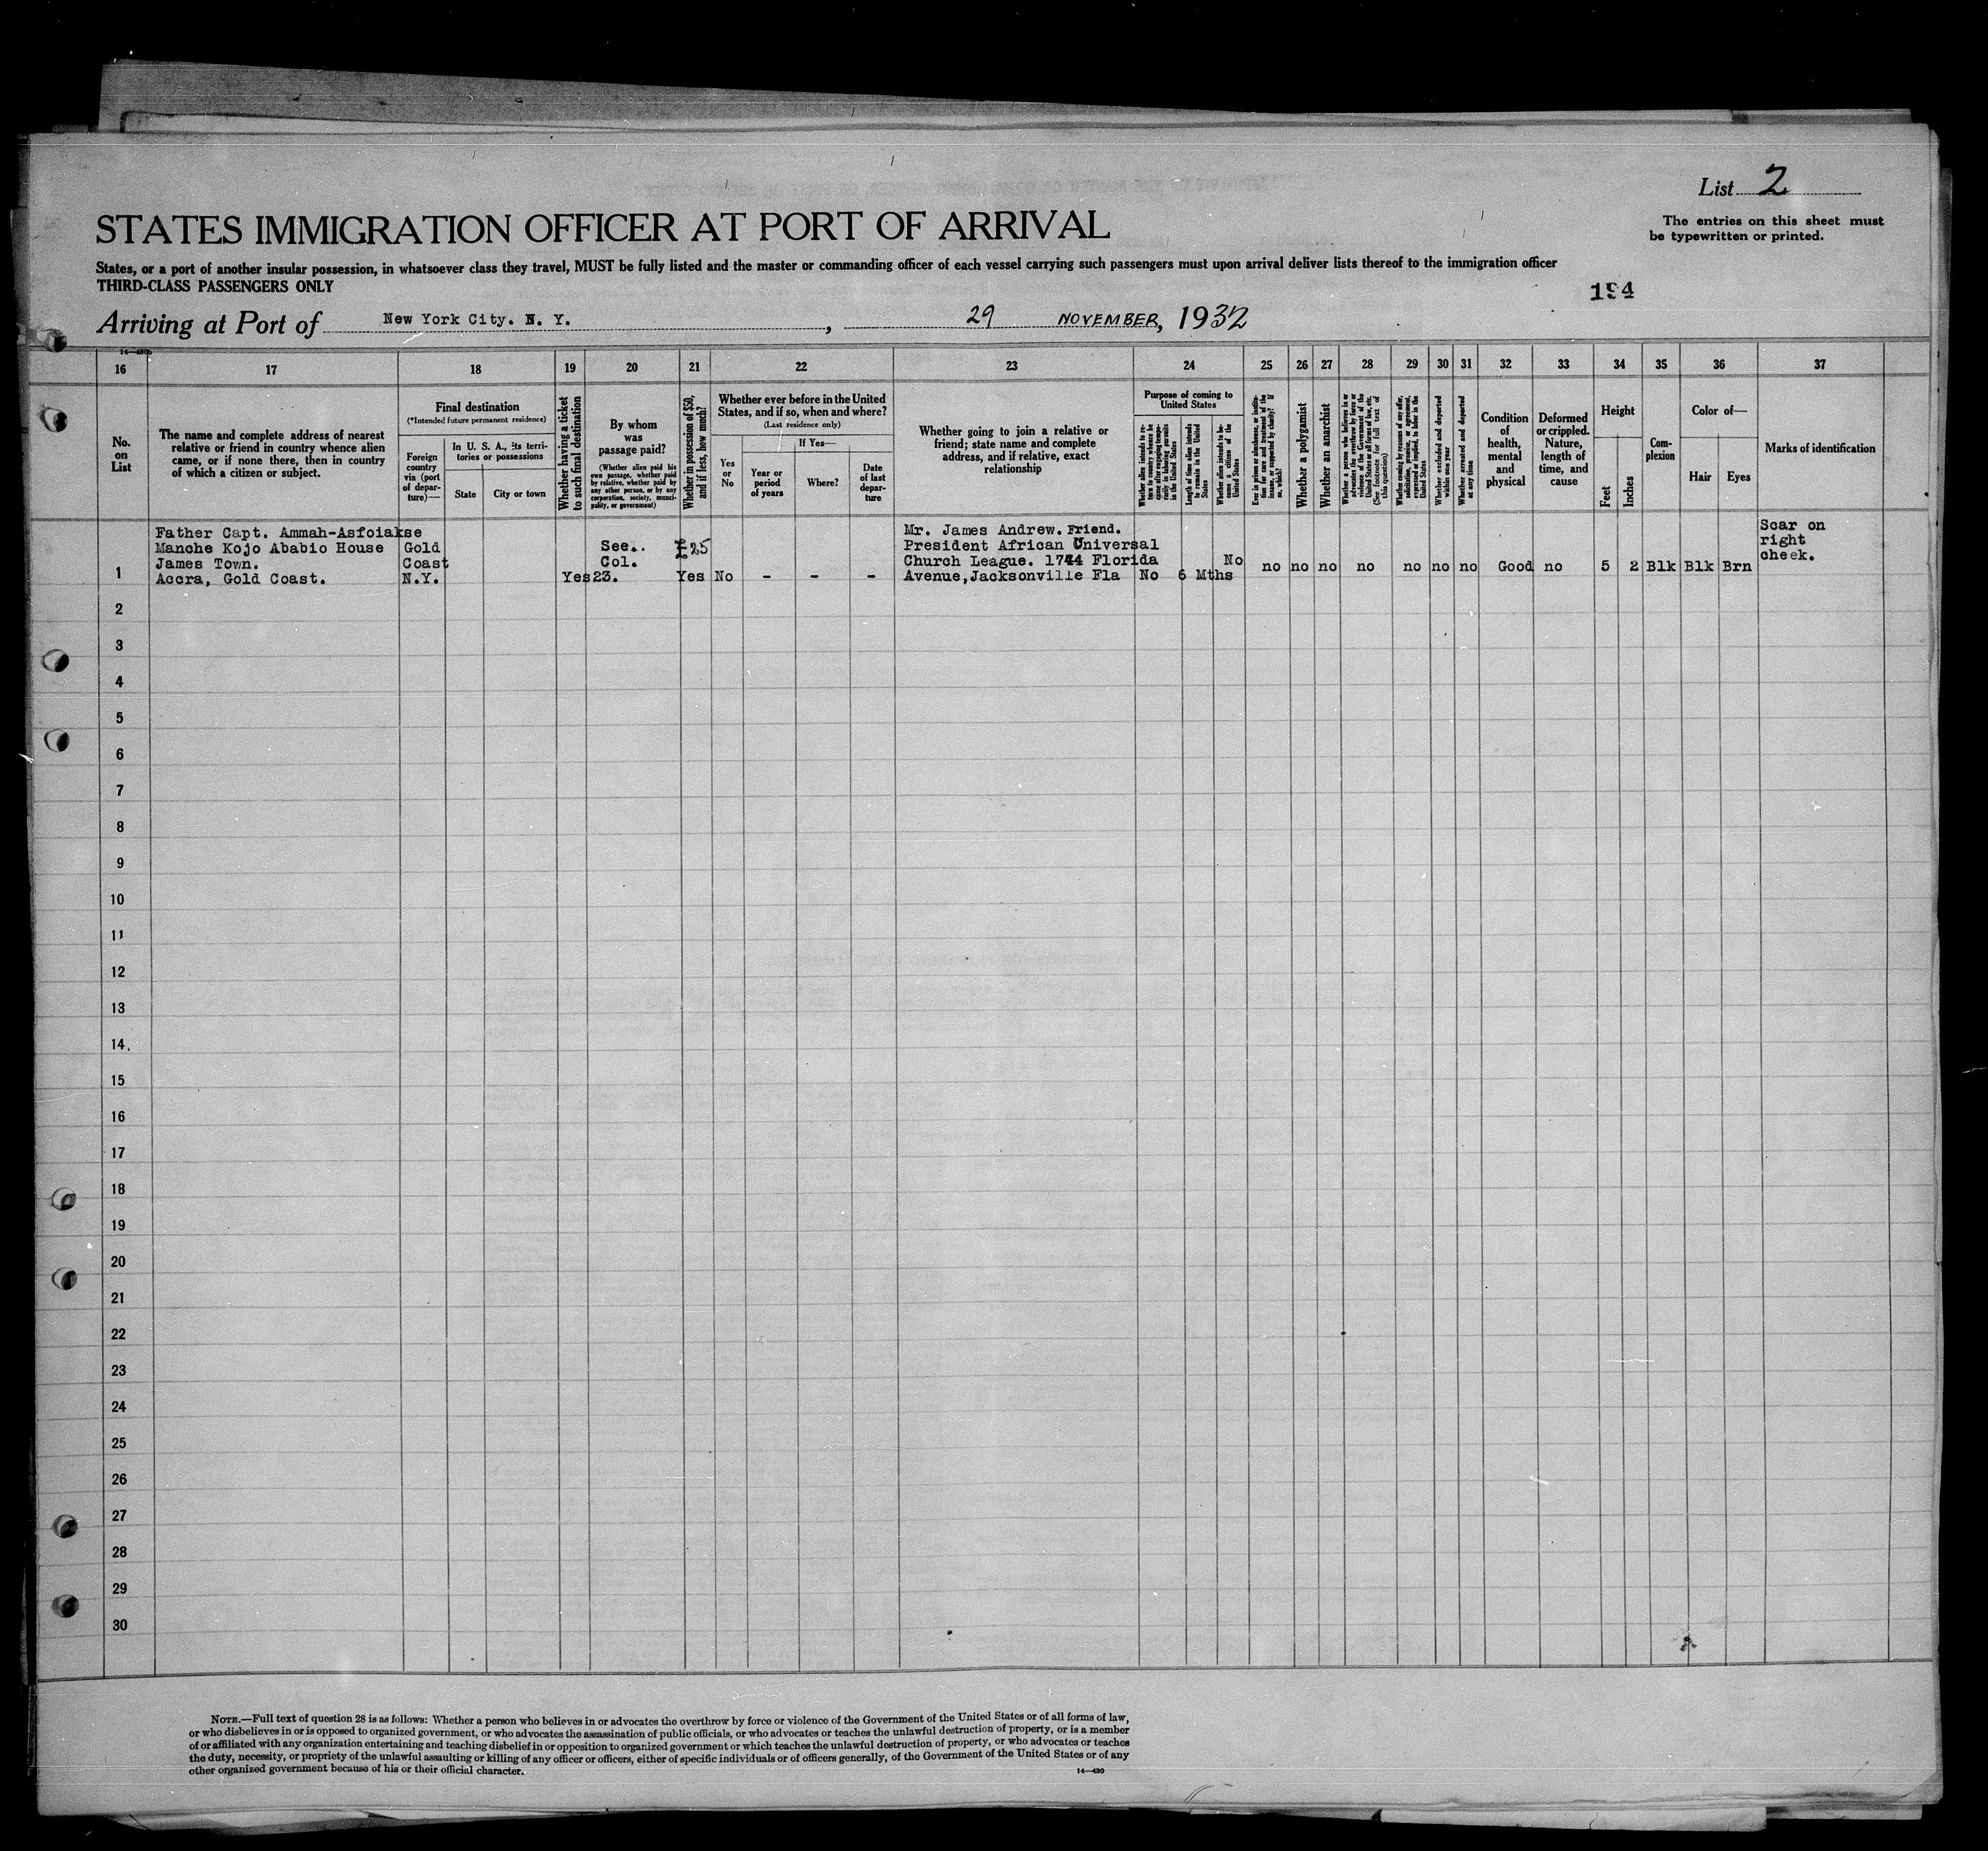 List 2
The entries on this sheet must
be typewritten or printed.
STATES IMMIGRATION OFFICER AT PORT OF ARRIVAL
States, or a port of another insular possession, in whatsoever class they travel, MUST be fully listed and the master or commanding officer of each vessel carrying such passengers must upon arrival deliver lists thereof to the immigration officer
THIRD-CLASS PASSENGERS ONLY
194
Arriving at Port of New York City. N. Y., 29 NOVEMBER, 1932
16 17 18 19 20 21 22 23 24 25 26 27 28 29 30 31 32 33 34 35 36 37
No.
on
List
The name and complete address of nearest
relative or friend in country whence alien
came, or if none there, then in country
of which a citizen or subject.
Final destination
(*Intended future permanent residence)
Foreign
country
via (port
of depar-
ture)—
In U. S. A., its terri-
tories or possessions
State
City or town
Whether having a ticket
to such final destination
By whom
was
passage paid?
(Whether alien paid his
own passage, whether paid
by relative, whether paid by
any other person, or by any
corporation, society, munici-
pality, or government)
Whether in possession of $50,
and if less, how much?
Whether ever before in the United
States, and if so, when and where?
(Last residence only)
Yes
or
No
If Yes—
Year or
period
of years
Where?
Date
of last
depar-
ture
Whether going to join a relative or
friend; state name and complete
address, and if relative, exact
relationship
Purpose of coming to
United States
Whether alien intends to re-
turn to country whence he
came after engaging tempo-
rarily in laboring pursuits
in the United States
Length of time alien intends
to remain in the United
States
Whether alien intends to be-
come a citizen of the
United States
Ever in prison or almshouse, or institu-
tion for care and treatment of the
insane, or supported by charity? If
so, which?
Whether a polygamist
Whether an anarchist
Whether a person who believes in or
advocates the overthrow by force or
violence of the Government of the
United States or all forms of law, etc.
(See footnote for full text of
this question)
Whether coming by reason of any offer,
solicitation, promise, or agreement,
expressed or implied, to labor in the
United States
Whether excluded and deported
within one year
Whether arrested and deported
at any time
Condition
of
health,
mental
and
physical
Deformed
or crippled.
Nature,
length of
time, and
cause
Height
Feet
Inches
Com-
plexion
Color of—
Hair
Eyes
Marks of identification
Father Capt. Ammah-Asfoiakse
Manche Kojo Ababio House
James Town.
1 Accra, Gold Coast.
Gold
Coast
N.Y.
Yes
See..
Col.
23.
£25
Yes
No - - -
Mr. James Andrew. Friend.
President African Universal
Church League. 1744 Florida
Avenue, Jacksonville Fla
No 6 Mths No
no no no no no no no Good no 5 2 Blk Blk Brn
Scar on
right
cheek.
2
3
4
5
6
7
8
9
10
11
12
13
14
15
16
17
18
19
20
21
22
23
24
25
26
27
28
29
30
NOTE.—Full text of question 28 is as follows: Whether a person who believes in or advocates the overthrow by force or violence of the Government of the United States or of all forms of law,
or who disbelieves in or is opposed to organized government, or who advocates the assassination of public officials, or who advocates or teaches the unlawful destruction of property, or is a member
of or affiliated with any organization entertaining and teaching disbelief in or opposition to organized government or which teaches the unlawful destruction of property, or who advocates or teaches
the duty, necessity, or propriety of the unlawful assaulting or killing of any officer or officers, either of specific individuals or of officers generally, of the Government of the United States or of any
other organized government because of his or their official character.
14—430